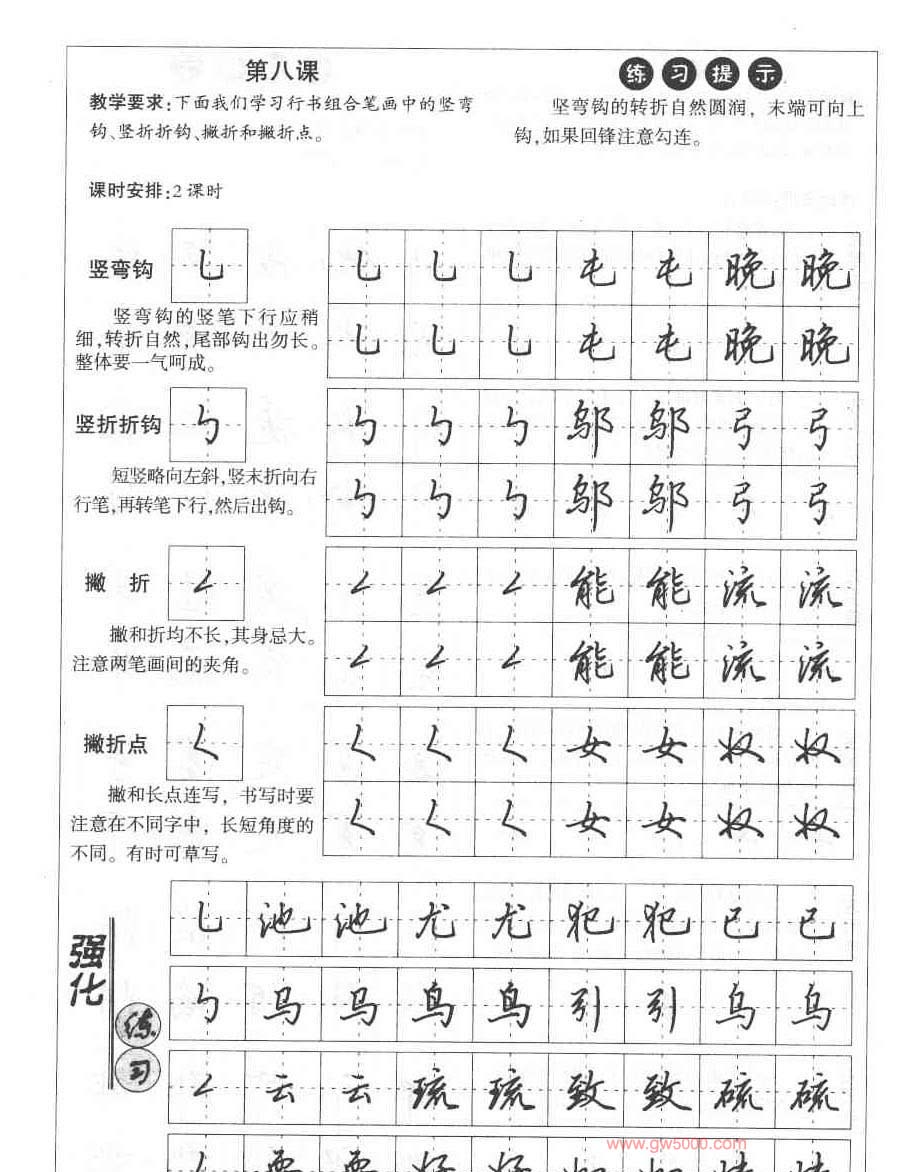 第八课
教学要求:下面我们学习行书组合笔画中的竖弯
钩、竖折折钩、撇折和撇折点。
课时安排:2课时
练习提示
竖弯钩的转折自然圆润，末端可向上
钩,如果回锋注意勾连。
竖弯钩 乚
竖弯钩的竖笔下行应稍
细,转折自然,尾部钩出勿长。
整体要一气呵成。
乚 乚 乚 屯 屯 晚 晚
乚 乚 乚 屯 屯 晚 晚
竖折折钩 ㄣ
短竖略向左斜,竖末折向右
行笔,再转笔下行,然后出钩。
ㄣ ㄣ ㄣ 邬 邬 弓 弓
ㄣ ㄣ ㄣ 邬 邬 弓 弓
撇 折 ㄥ
撇和折均不长,其身忌大。
注意两笔画间的夹角。
ㄥ ㄥ ㄥ 能 能 流 流
ㄥ ㄥ ㄥ 能 能 流 流
撇折点 ㄑ
撇和长点连写，书写时要
注意在不同字中，长短角度的
不同。有时可草写。
ㄑ ㄑ ㄑ 女 女 奴 奴
ㄑ ㄑ ㄑ 女 女 奴 奴
强化练习
乚 池 池 尤 尤 犯 犯 已 已
ㄣ 马 马 鸟 鸟 引 引 乌 乌
ㄥ 云 云 琉 琉 致 致 硫 硫
www.gw5000.com